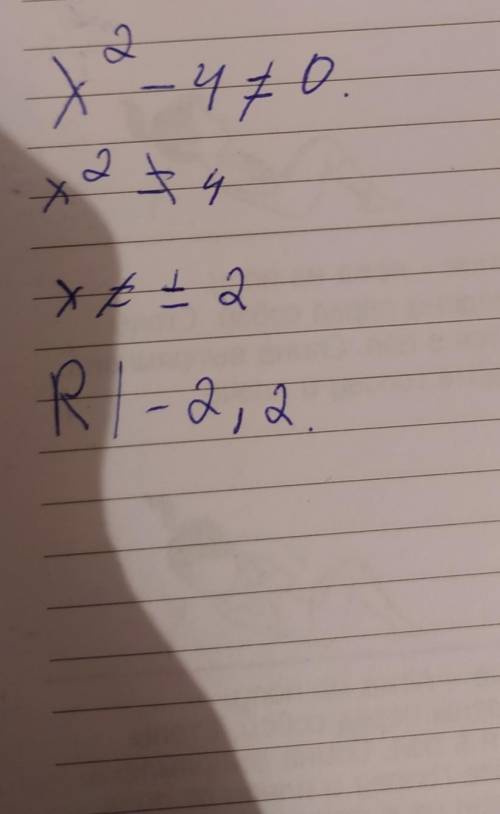 x² - 4 ≠ 0.
x² ≠ 4
x ≠ ± 2
R | - 2, 2.